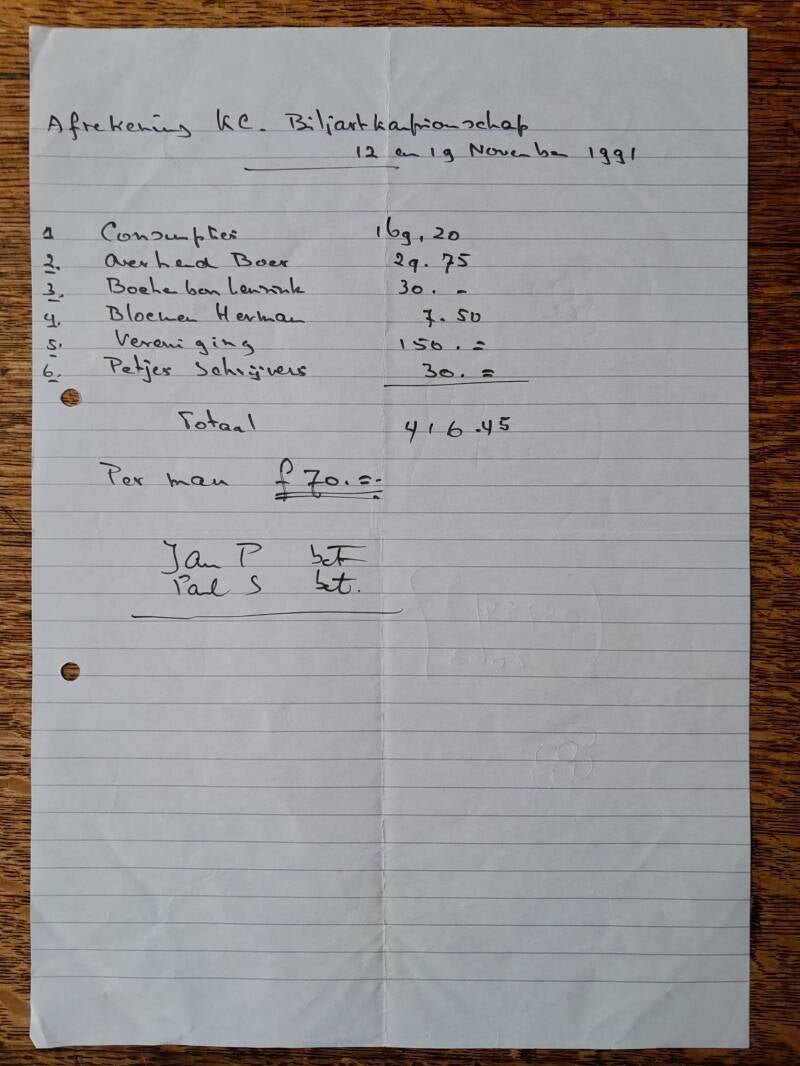 Afrekening KC. Biljartkampionschap
12 en 19 November 1991
1 Consumpties 169,20
2. Overhemd Boer 29.75
3. Boekenbon Lensink 30.-
4. Bloemen Herman 7.50
5. Vereniging 150.=
6. Petjes Schrijvers 30.=
Totaal 416.45
Per man f 70.=
Jan P bet
Paul S bet.